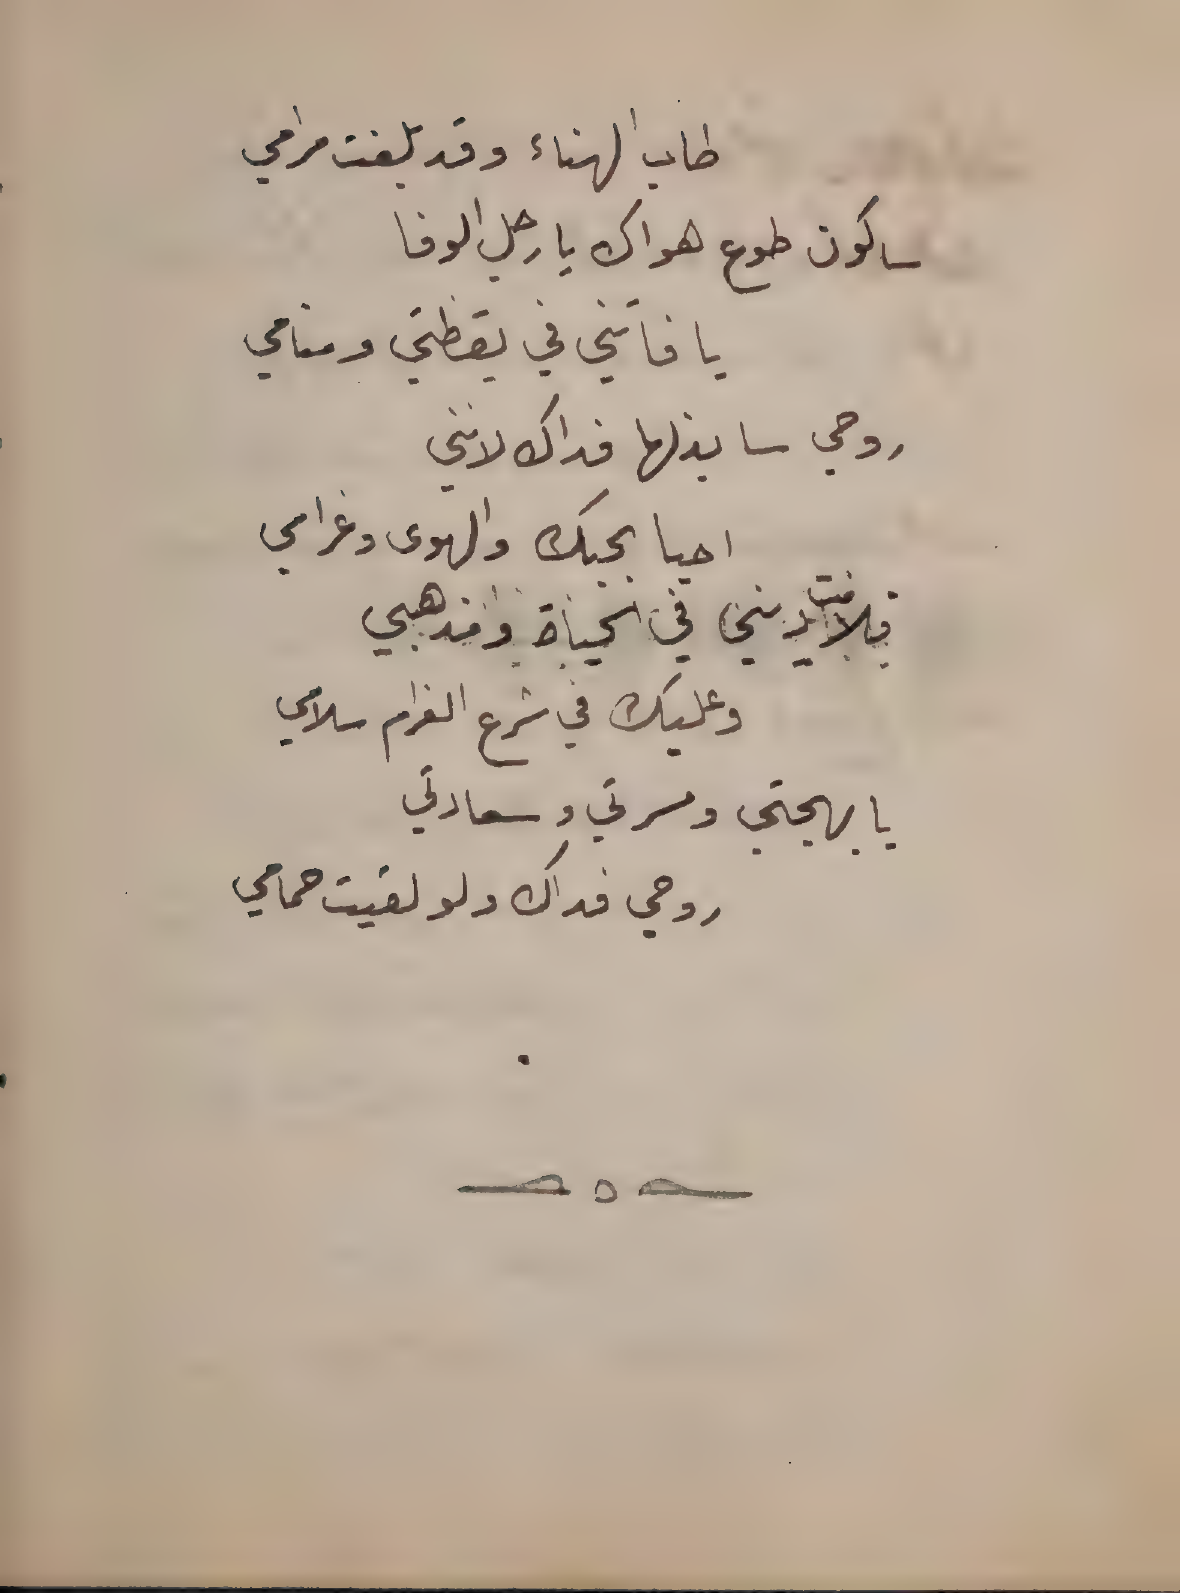 طاب الهناء وقد بلغت مرامي
ساكون طوع هواك يا رجل الوفا
يا فاتني في يقظتي ومنامي
روحي سابذلها فداك لانني
احيا بحبك والهوى وغرامي
فلانت ديني في الحياة ومذهبي
وعليك في شرع الغرام سلامي
يا بهجتي ومسرتي وسعادتي
روحي فداك ولو لقيت حمامي